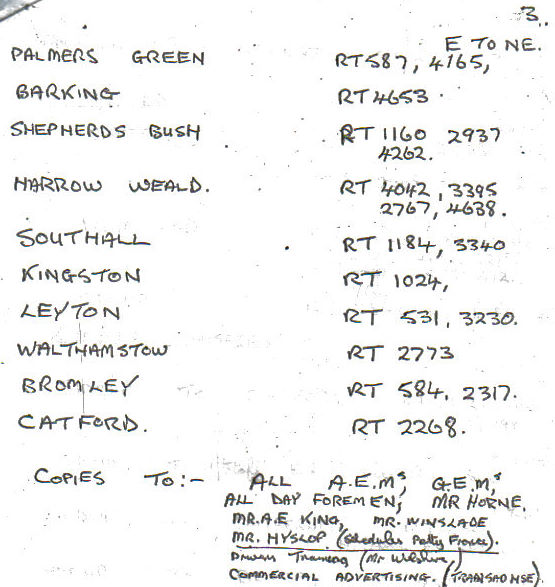 3.
E TO NE.
PALMERS GREEN RT587, 4165,
BARKING RT4653.
SHEPHERDS BUSH RT 1160 2937
4262.
HARROW WEALD. RT 4042, 3395
2767, 4638.
SOUTHALL RT 1184, 3340
KINGSTON RT 1024,
LEYTON RT 531, 3230.
WALTHAMSTOW RT 2773
BROMLEY RT 584. 2317.
CATFORD. RT 2268.
COPIES TO:- ALL A.E.Ms, G.E.Ms,
ALL DAY FOREMEN, MR HORNE.
MR.A.E KING, MR. WINSLADE
MR. HYSLOP. (Schedules Petty France).
Driver Training (Mr
COMMERCIAL ADVERTISING. (TRANSADHSE)